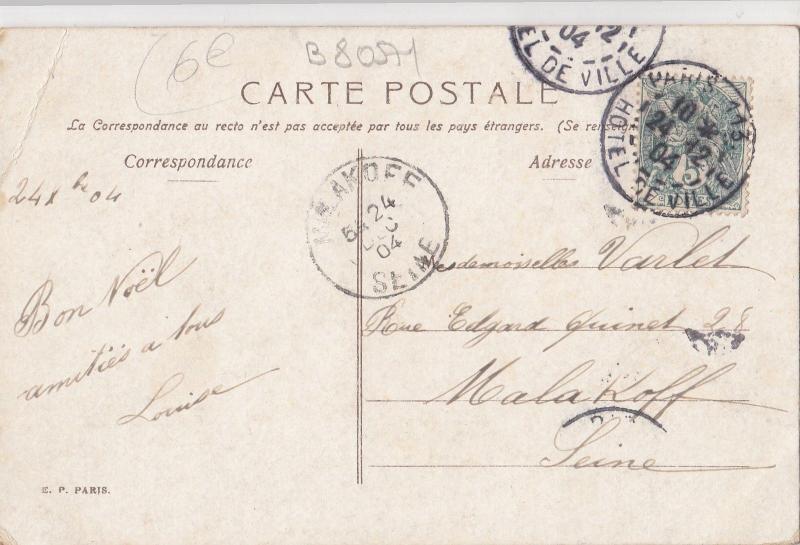 6€
B80571
CARTE POSTALE
La Correspondance au recto n'est pas acceptée par tous les pays étrangers. (Se renseign
Correspondance
Adresse
EL DE VILLE
04
PARIS 113
10
24 12
04
HOTEL DE VILLE
5
MALAKOFF
24
04
SEINE
24 Xbre 04
Bon Noël
amitiés a tous
Louise
esdemoiselles Varlet
Rue Edgard Quinet 28
Malakoff
Seine
E. P. PARIS.